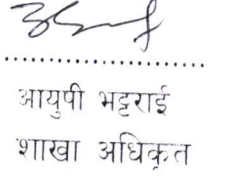 ....................................
आयुषी भट्टराई
शाखा अधिकृत